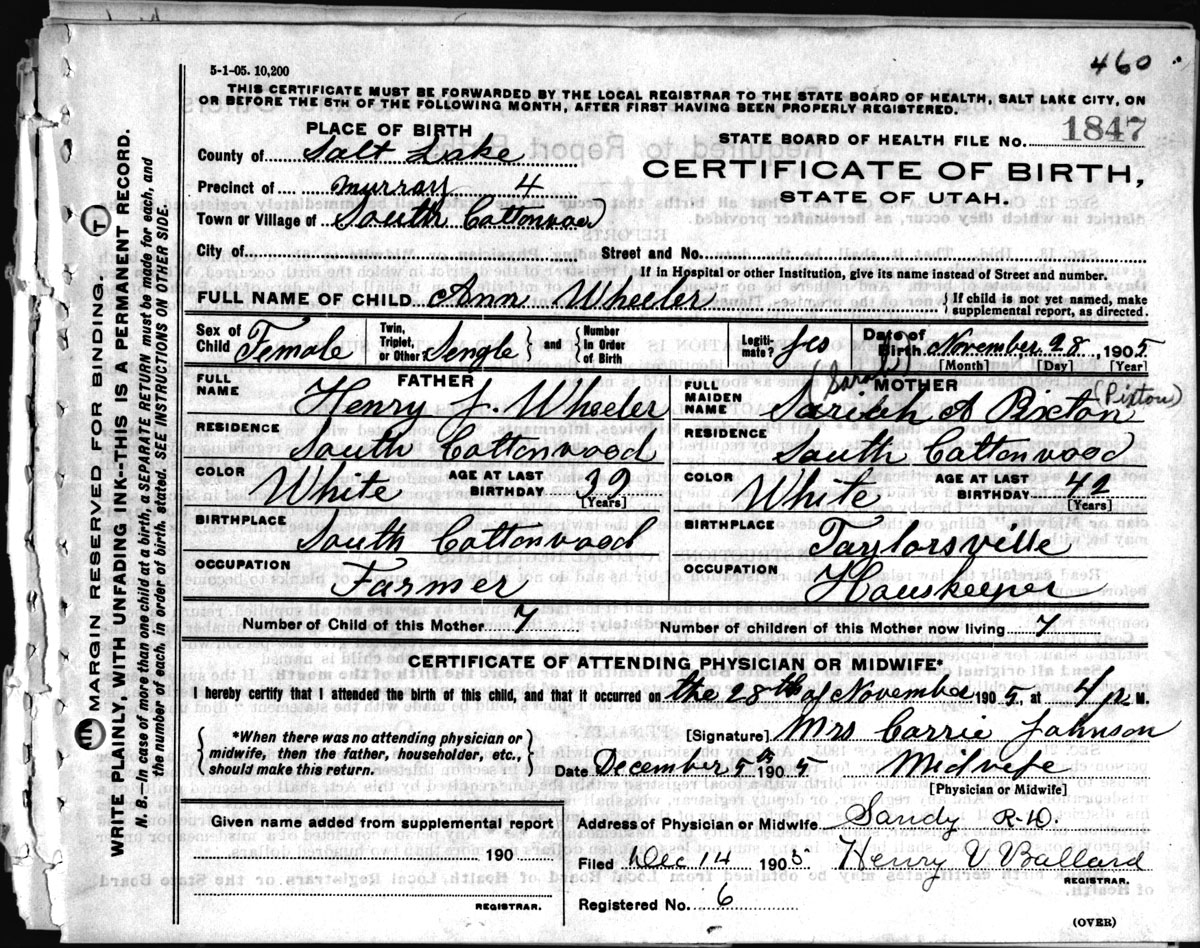 460
5-1-05. 10,200
THIS CERTIFICATE MUST BE FORWARDED BY THE LOCAL REGISTRAR TO THE STATE BOARD OF HEALTH, SALT LAKE CITY, ON
OR BEFORE THE 5TH OF THE FOLLOWING MONTH, AFTER FIRST HAVING BEEN PROPERLY REGISTERED.
PLACE OF BIRTH
STATE BOARD OF HEALTH FILE No. 1847
County of Salt Lake
CERTIFICATE OF BIRTH,
Precinct of Murray 4
STATE OF UTAH.
Town or Village of South Cottonwood
City of Street and No.
If in Hospital or other Institution, give its name instead of Street and number.
FULL NAME OF CHILD Ann Wheeler { If child is not yet named, make
supplemental report, as directed.
Sex of Child Female Twin, Triplet, or Other Sengle } and { Number in Order of Birth Legiti-mate? Yes Date of Birth November 28, 1905
[Month] [Day] [Year]
FATHER (Sarah) MOTHER (Pixton)
FULL NAME Henry J. Wheeler FULL MAIDEN NAME Sariah A Pixton
RESIDENCE South Cottonwood RESIDENCE South Cottonwood
COLOR White AGE AT LAST BIRTHDAY 39 [Years] COLOR White AGE AT LAST BIRTHDAY 42 [Years]
BIRTHPLACE South Cottonwood BIRTHPLACE Taylorsville
OCCUPATION Farmer OCCUPATION Howskeeper
Number of Child of this Mother 7 Number of children of this Mother now living 7
CERTIFICATE OF ATTENDING PHYSICIAN OR MIDWIFE*
I hereby certify that I attended the birth of this child, and that it occurred on the 28th of November 1905, at 4 p M.
{ *When there was no attending physician or
midwife, then the father, householder, etc.,
should make this return. }
[Signature] Mrs Carrie Johnson
Date December 5th 1905 Midwife
[Physician or Midwife]
Given name added from supplemental report
190
REGISTRAR.
Address of Physician or Midwife Sandy R-D.
Filed Dec 14 1905 Henry V Ballard
REGISTRAR.
Registered No. 6
(OVER)
MARGIN RESERVED FOR BINDING.
WRITE PLAINLY, WITH UNFADING INK--THIS IS A PERMANENT RECORD.
N. B.—In case of more than one child at a birth, a SEPARATE RETURN must be made for each, and
the number of each, in order of birth, stated. SEE INSTRUCTIONS ON OTHER SIDE.